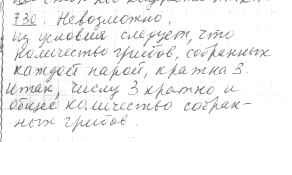 732. Невозможно.
Из условия следует, что
количество грибов, собранных
каждой парой, кратна 3.
Итак, числу 3 кратно и
общее количество собран-
ных грибов.